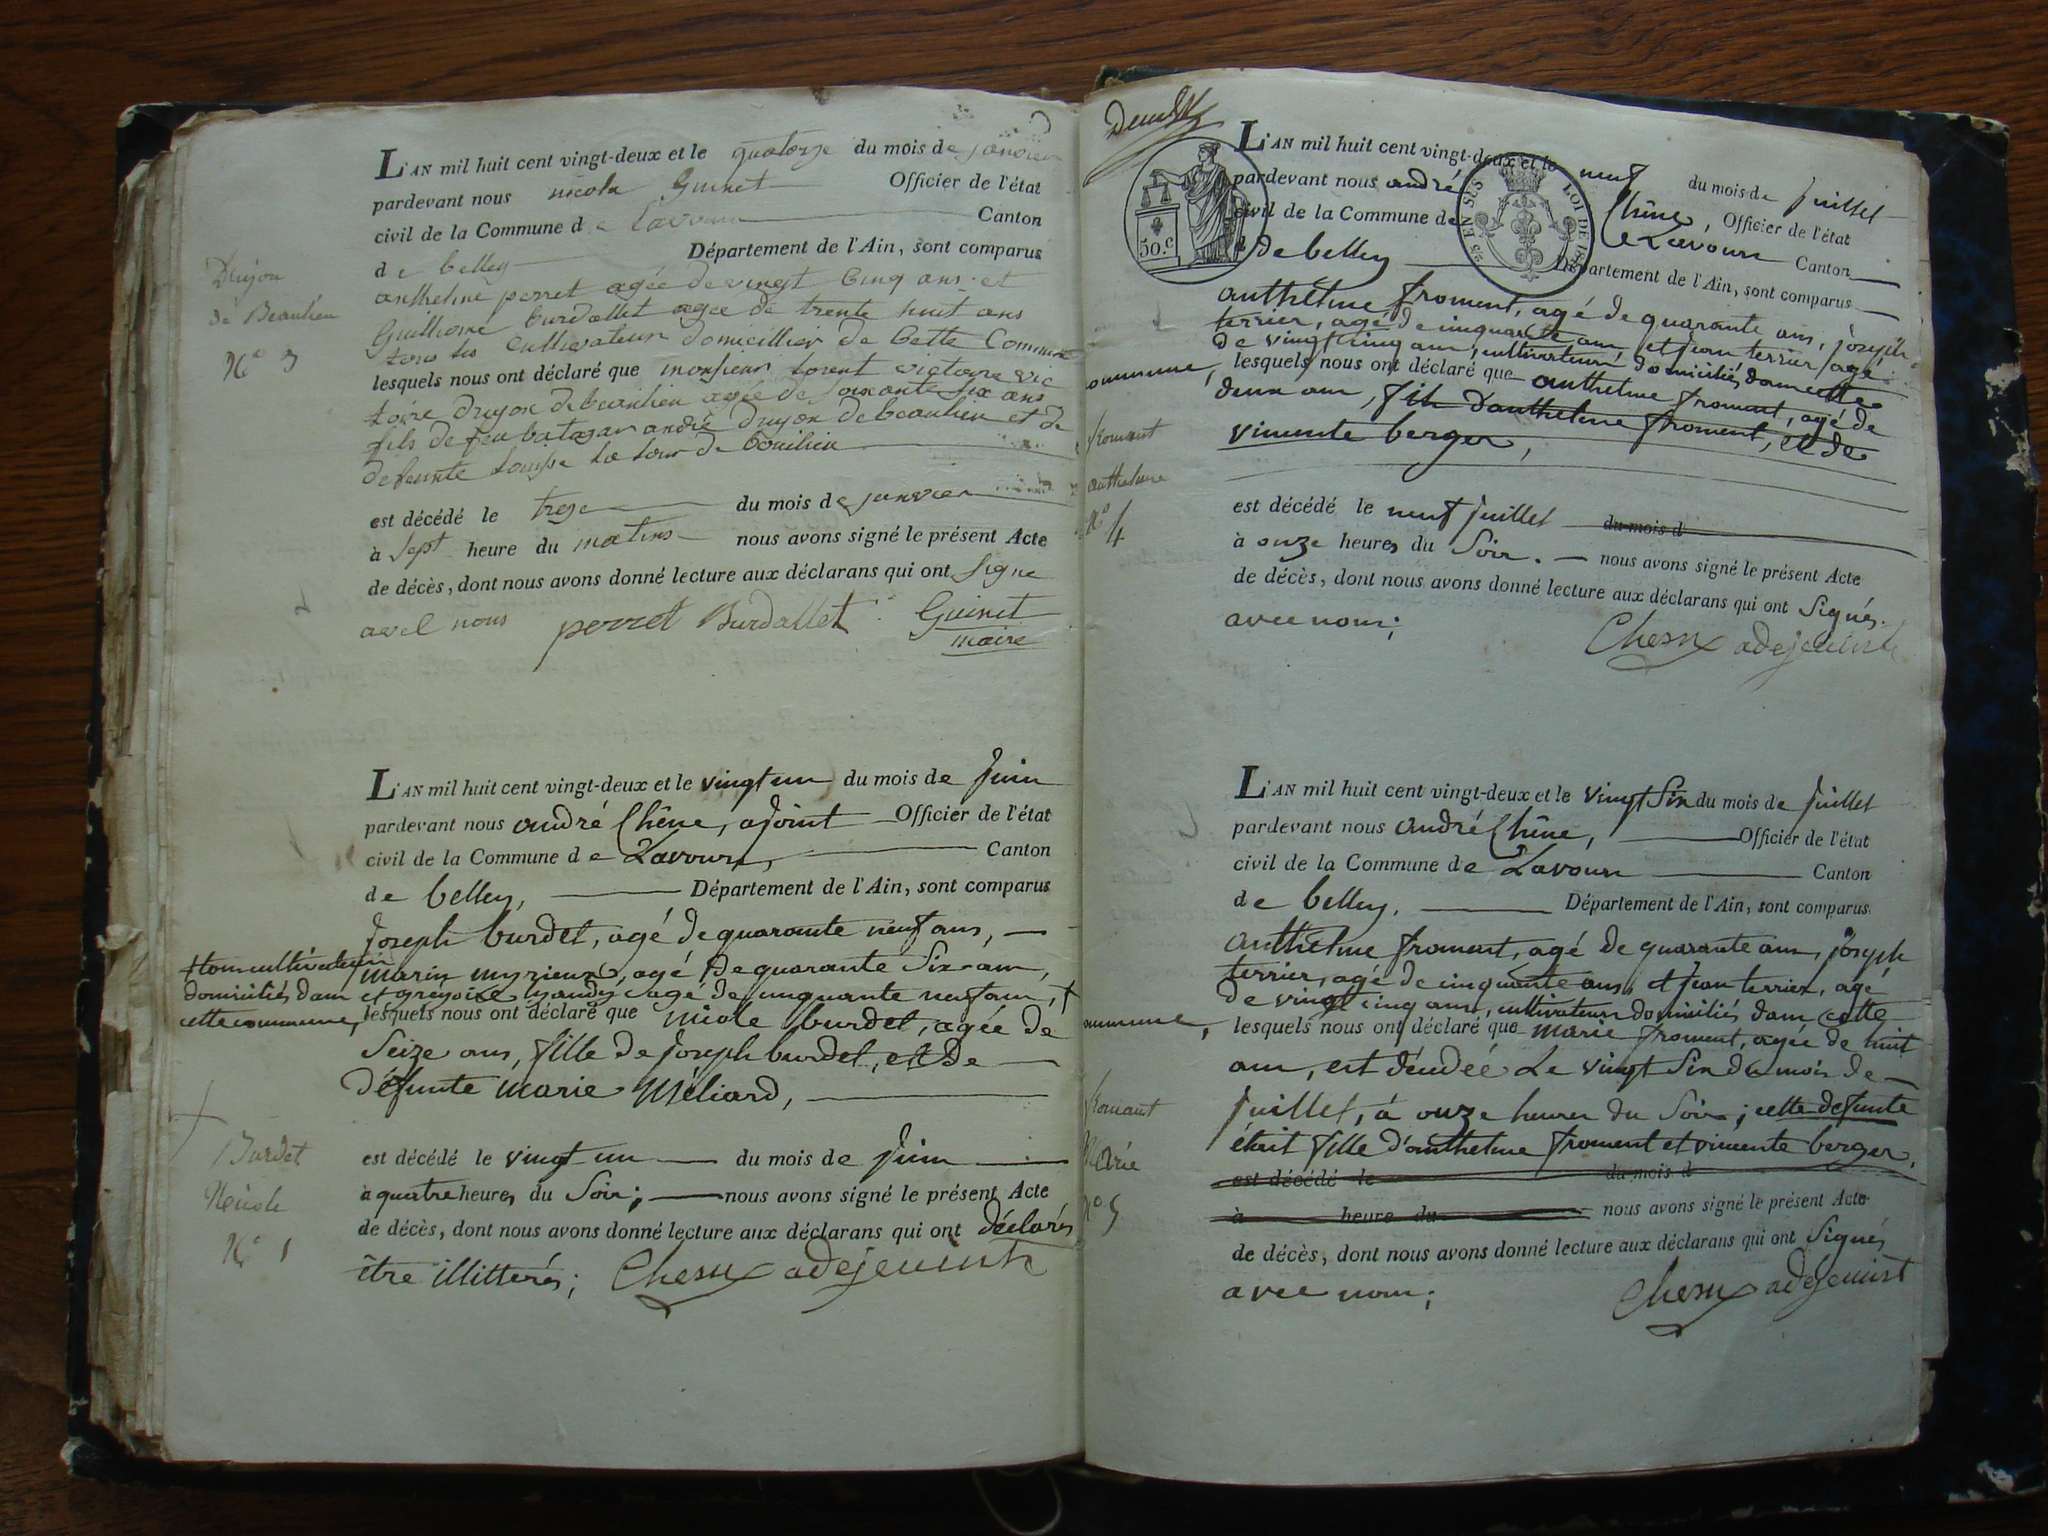 L'AN mil huit cent vingt-deux et le quatorze du mois de janvier
pardevant nous nicola Guinet Officier de l'état
civil de la Commune de Lavours Canton
de belley Département de l'Ain, sont comparus
anthelme perret agée de vingt Cinq ans et
Guilliome burdallet agée de trente huit ans
tous les Cultivateur domicillier de Cette Commune
lesquels nous ont déclaré que monsieur lorent victoire vic
toire drujon de beaulieu agée de soixante six ans
fils de feu andré drujon de beaulieu et de
defeunte la tour de
est décédé le treze du mois de janvier
à Sept heure du matins nous avons signé le présent Acte
de décès, dont nous avons donné lecture aux déclarans qui ont Signe
avec nous perret Burdallet Guinet
maire
Drujon
de Beaulieu
N° 3
L'AN mil huit cent vingt-deux et le vingt un du mois de Juin
pardevant nous andré Chêne, ajoint Officier de l'état
civil de la Commune de Lavours, Canton
de belley, Département de l'Ain, sont comparus
Joseph burdet, agé de quarante neuf ans,
marin myrieux, agé de quarante Six ans,
et grégoire agé de cinquante neuf ans, +
+ tous cultivateurs
domiciliés dans
cette commune,
lesquels nous ont déclaré que nicole burdet, agée de
Seize ans, fille de Joseph burdet, et de
défunte marie Méliard,
est décédé le vingt un du mois de Juin
à quatre heures du Soir; nous avons signé le présent Acte
de décès, dont nous avons donné lecture aux déclarans qui ont déclarés
être illittérés; Chesne adejeuint
Burdet
Nicole
N° 1
L'AN mil huit cent vingt-deux et le neuf du mois de Juillet
pardevant nous andré Chêne Officier de l'état
civil de la Commune de Lavours Canton
de belley Département de l'Ain, sont comparus
50.c
25 EN SUS LOI DE
anthelme froment, agé de quarante ans, joseph
terrier, agé de cinquante ans et jean terrier, agé
de vingt cinq ans, cultivateurs domiciliés dans cette
commune,
lesquels nous ont déclaré que anthelme froment, agé de
deux ans, fils d'anthelme froment, et de
vincente berger,
froment
anthelme
N° 4
est décédé le neuf juillet du mois d
à onze heures du Soir. nous avons signé le présent Acte
de décès, dont nous avons donné lecture aux déclarans qui ont Signés
avec nous; Chesne adejeuint
L'AN mil huit cent vingt-deux et le vingt Six du mois de juillet
pardevant nous andré Chêne, Officier de l'état
civil de la Commune de Lavours Canton
de belley. Département de l'Ain, sont comparus
anthelme froment, agé de quarante ans, joseph
terrier, agé de cinquante ans, et jean terrier, agé
de vingt cinq ans, cultivateurs domiciliés dans cette
commune,
lesquels nous ont déclaré que marie froment, agée de huit
ans, est décédée Le vingt Six du mois de
juillet, à onze heures du Soir; cette defunte
était fille d'anthelme froment et vincente berger.
est décédé le du mois d
à heure du nous avons signé le présent Acte
de décès, dont nous avons donné lecture aux déclarans qui ont Signés
avec nous; Chesne adejeuint
froment
Marie
N° 5